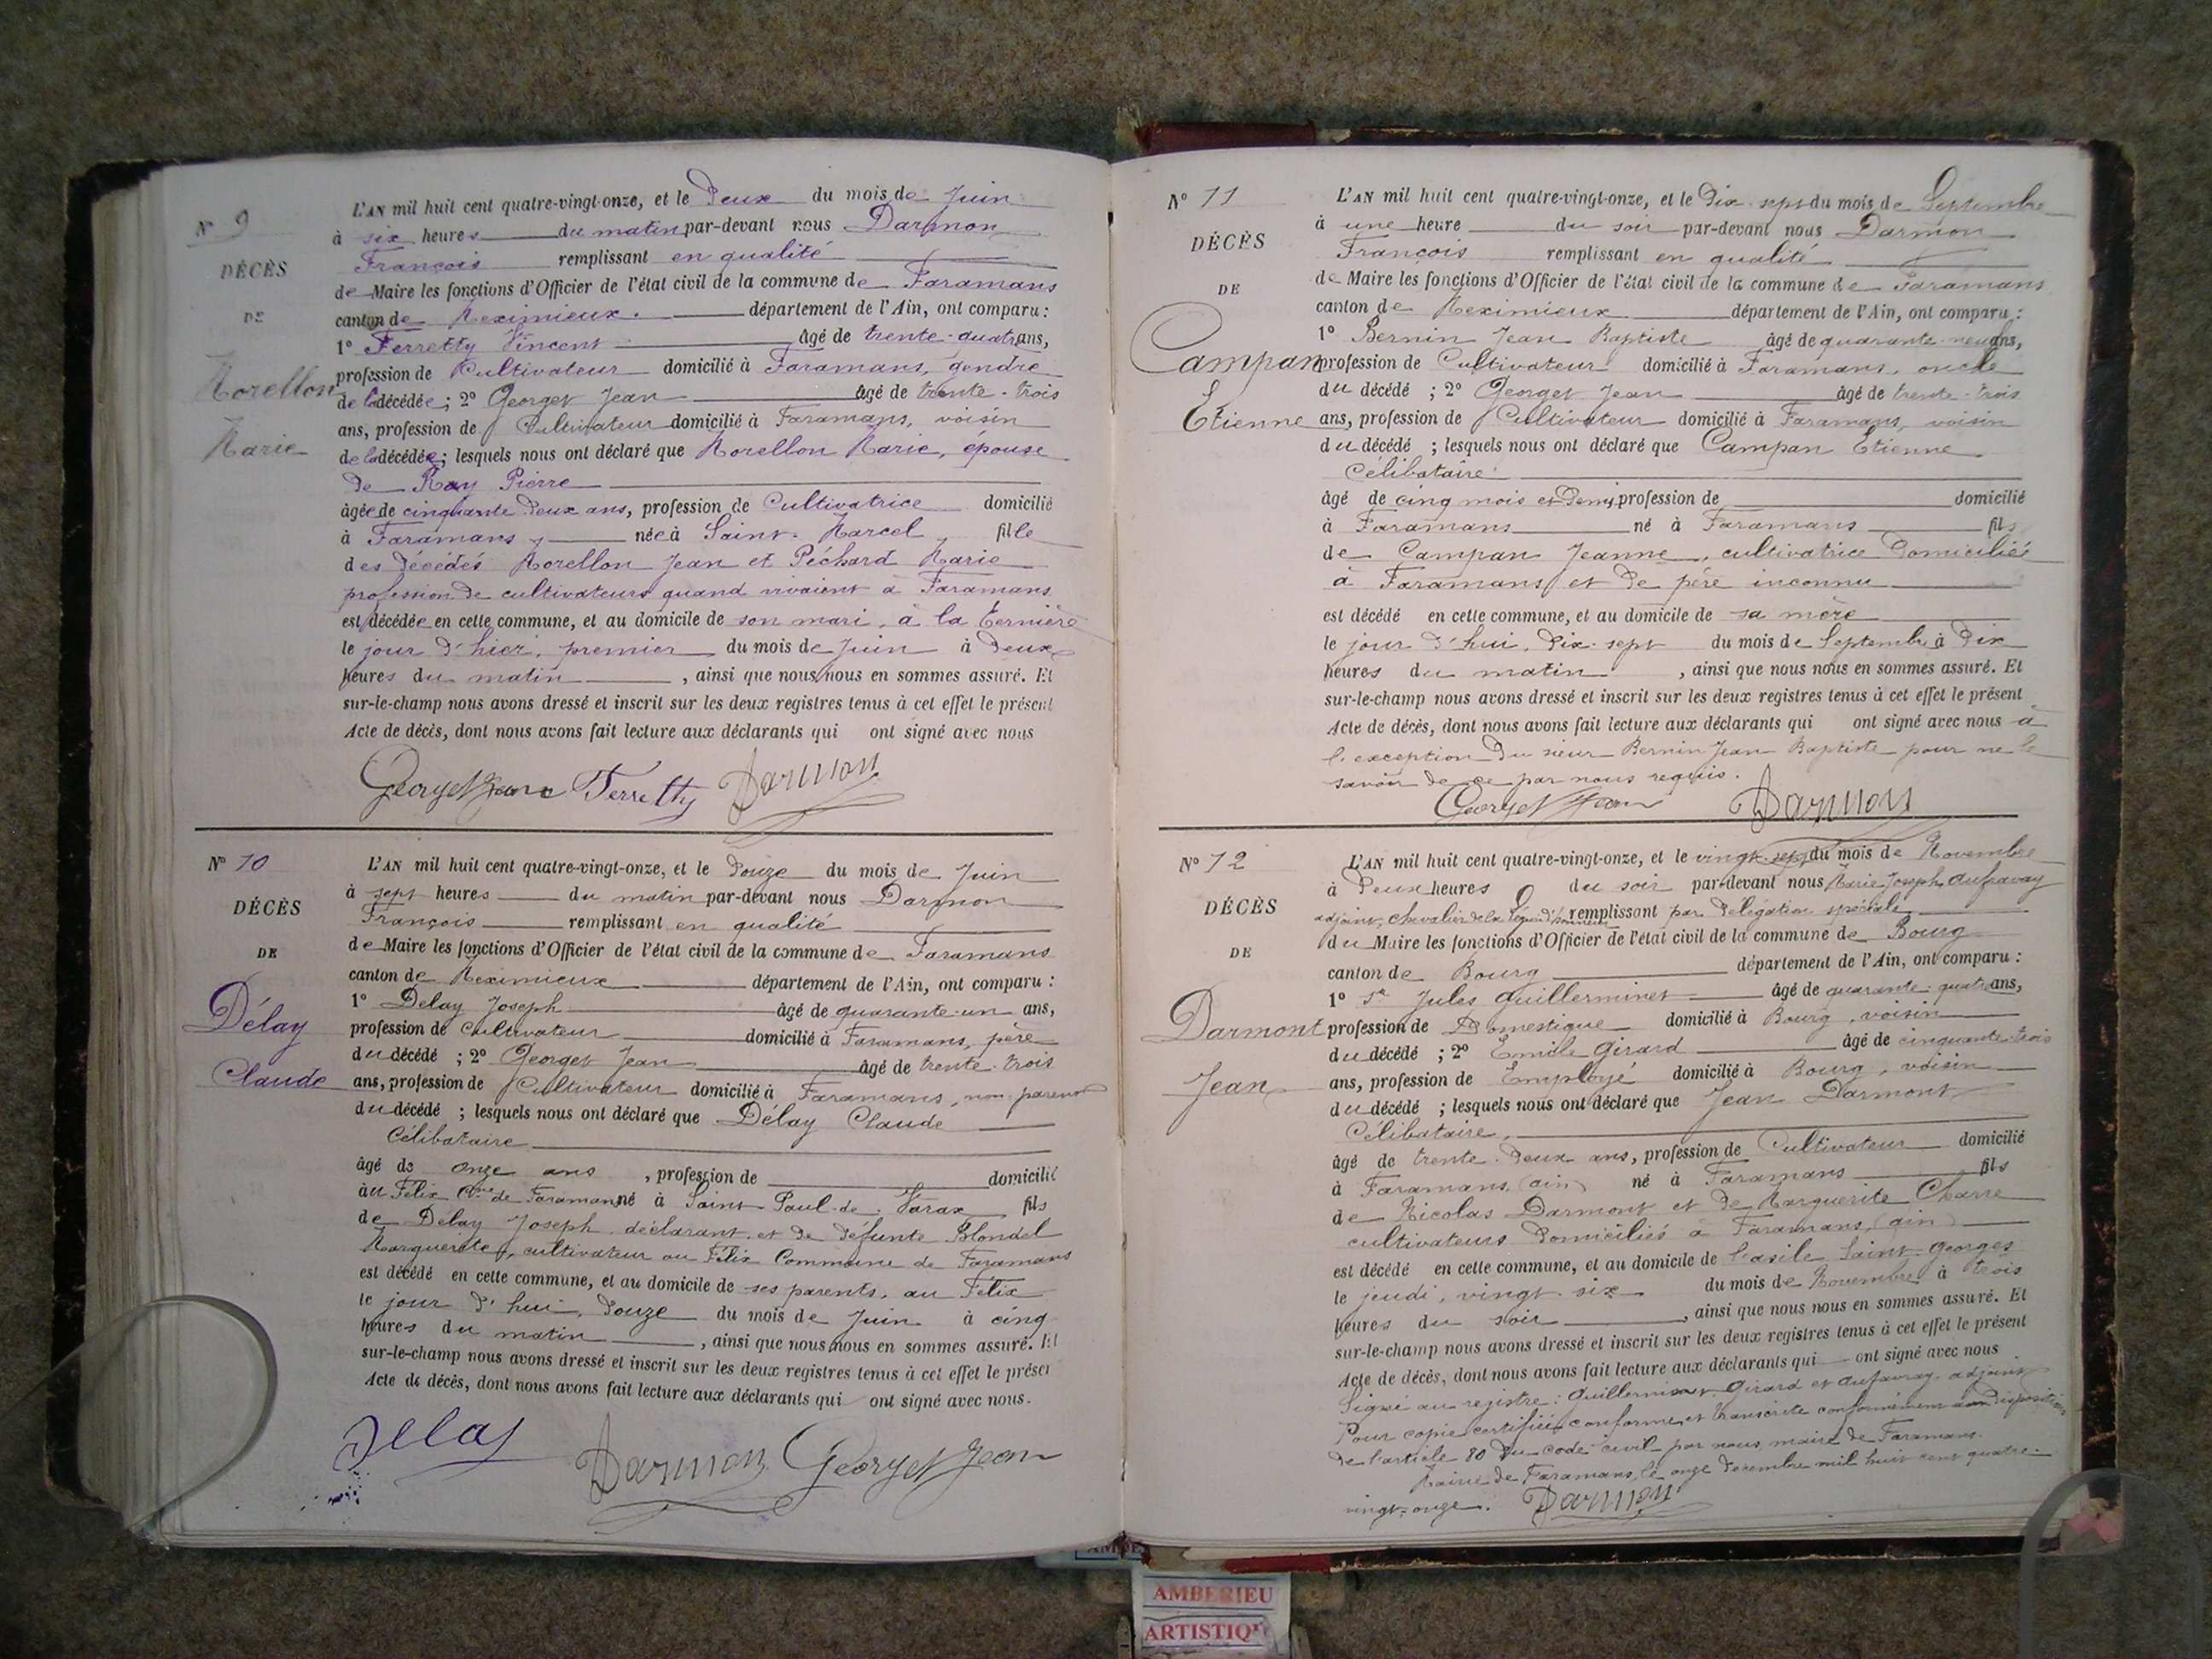 N° 9
DÉCÈS
DE
Morellon
Marie
L'AN mil huit cent quatre-vingt-onze, et le Deux du mois de Juin
à six heures du matin par-devant nous Darmon
François remplissant en qualité
de Maire les fonctions d'Officier de l'état civil de la commune de Faramans
canton de Meximieux département de l'Ain, ont comparu :
1° Ferretty Vincent âgé de trente-quatre ans,
profession de Cultivateur domicilié à Faramans, gendre
de la décédée ; 2° Georget Jean âgé de trente-trois
ans, profession de Cultivateur domicilié à Faramans, voisin
de la décédée ; lesquels nous ont déclaré que Morellon Marie, épouse
de Ray Pierre
âgée de cinquante deux ans, profession de Cultivatrice domicilié
à Faramans née à Saint-Marcel, fille
des décédés Morellon Jean et Péchard Marie
profession de cultivateurs quand vivaient à Faramans
est décédée en cette commune, et au domicile de son mari, à la
le jour d'hier, premier du mois de Juin à Deux
heures du matin, ainsi que nous nous en sommes assuré. Et
sur-le-champ nous avons dressé et inscrit sur les deux registres tenus à cet effet le présent
Acte de décès, dont nous avons fait lecture aux déclarants qui ont signé avec nous
Georget Jean Ferretty Darmon
N° 10
DÉCÈS
DE
Délay
Claude
L'AN mil huit cent quatre-vingt-onze, et le Douze du mois de Juin
à sept heures du matin par-devant nous Darmon
François remplissant en qualité
de Maire les fonctions d'Officier de l'état civil de la commune de Faramans
canton de Meximieux département de l'Ain, ont comparu :
1° Délay Joseph âgé de quarante-un ans,
profession de Cultivateur domicilié à Faramans, père
du décédé ; 2° Georget Jean âgé de trente-trois
ans, profession de Cultivateur domicilié à Faramans, non parent
du décédé ; lesquels nous ont déclaré que Délay Claude
Célibataire
âgé de onze ans, profession de domicilié
au Félix Cne de Faramans né à Saint-Paul-de-Varax fils
de Délay Joseph déclarant et de défunte Blondel
Marguerite, cultivateur au Félix Commune de Faramans
est décédé en cette commune, et au domicile de ses parents, au Félix
le jour d'hui, Douze du mois de Juin à cinq
heures du matin, ainsi que nous nous en sommes assuré. Et
sur-le-champ nous avons dressé et inscrit sur les deux registres tenus à cet effet le présen
Acte de décès, dont nous avons fait lecture aux déclarants qui ont signé avec nous.
Delay Darmon Georget Jean
N° 11
DÉCÈS
DE
Campan
Etienne
L'AN mil huit cent quatre-vingt-onze, et le Dix-sept du mois de Septembre
à une heure du soir par-devant nous Darmon
François remplissant en qualité
de Maire les fonctions d'Officier de l'état civil de la commune de Faramans
canton de Meximieux département de l'Ain, ont comparu :
1° Bernin Jean Baptiste âgé de quarante-neuf ans,
profession de Cultivateur domicilié à Faramans, oncle
du décédé ; 2° Georget Jean âgé de trente-trois
ans, profession de Cultivateur domicilié à Faramans, voisin
du décédé ; lesquels nous ont déclaré que Campan Etienne
Célibataire
âgé de cinq mois et Demi, profession de domicilié
à Faramans né à Faramans fils
de Campan Jeanne, cultivatrice Domiciliée
à Faramans et de père inconnu
est décédé en cette commune, et au domicile de sa mère
le jour d'hui, Dix-sept du mois de Septembre à Dix
heures du matin, ainsi que nous nous en sommes assuré. Et
sur-le-champ nous avons dressé et inscrit sur les deux registres tenus à cet effet le présent
Acte de décès, dont nous avons fait lecture aux déclarants qui ont signé avec nous à
l'exception du sieur Bernin Jean Baptiste pour ne le
savoir de ce par nous requis.
Georget Jean Darmon
N° 12
DÉCÈS
DE
Darmont
Jean
L'AN mil huit cent quatre-vingt-onze, et le vingt-sept du mois de Novembre
à Deux heures du soir par-devant nous Marie Joseph Aufavray
adjoint, chevalier de la légion d'honneur remplissant par délégation spéciale
du Maire les fonctions d'Officier de l'état civil de la commune de Bourg
canton de Bourg département de l'Ain, ont comparu :
1° Sr Jules Guillerminet âgé de quarante-quatre ans,
profession de Domestique domicilié à Bourg, voisin
du décédé ; 2° Emile Girard âgé de cinquante-trois
ans, profession de Employé domicilié à Bourg, voisin
du décédé ; lesquels nous ont déclaré que Jean Darmont
Célibataire,
âgé de trente-Deux ans, profession de Cultivateur domicilié
à Faramans (ain) né à Faramans fils
de Nicolas Darmont et de Marguerite Charre
cultivateurs Domiciliés à Faramans (ain)
est décédé en cette commune, et au domicile de l'asile Saint-Georges
le jeudi, vingt-six du mois de Novembre à trois
heures du soir, ainsi que nous nous en sommes assuré. Et
sur-le-champ nous avons dressé et inscrit sur les deux registres tenus à cet effet le présent
Acte de décès, dont nous avons fait lecture aux déclarants qui ont signé avec nous
Signé au registre : Guillerminet, Girard et Aufavray adjoint
Pour copie certifiée conforme et transcrite conformément aux dispositions
de l'article 80 du code civil par nous maire de Faramans.
Mairie de Faramans, le onze Décembre mil huit cent quatre-
vingt-onze. Darmon
AMBERIEU
ARTISTIQ